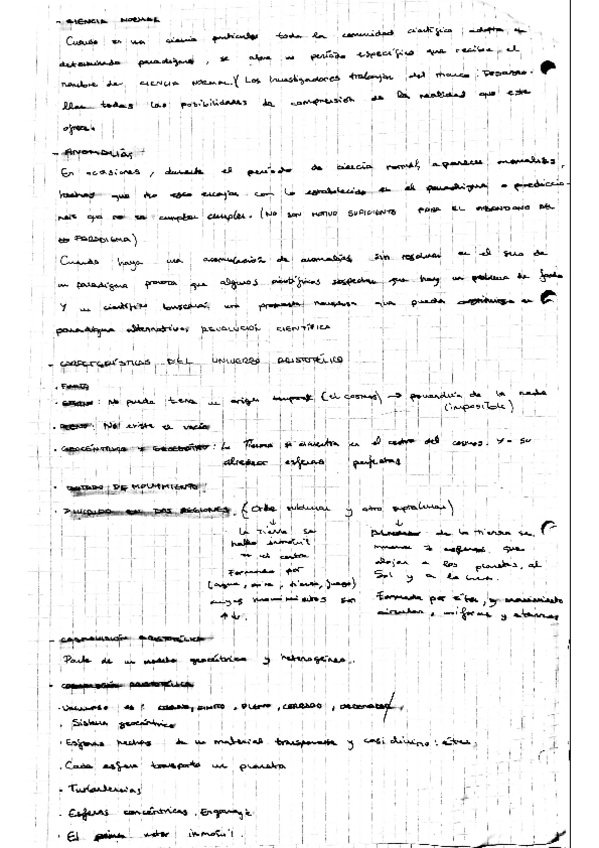 - CIENCIA NORMAL
Cuando en una ciencia particular toda la comunidad científica adopta un
determinado paradigma, se abre un periodo específico que recibe el
nombre de CIENCIA NORMAL. (Los investigadores trabajan del marco. Desarro-
llan todas las posibilidades de comprensión de la realidad que este
ofrece.
- ANOMALÍAS
En ocasiones, durante el periodo de ciencia normal, aparecen anomalías,
hechos que no encajan con lo establecido en el paradigma o prediccio-
nes que no se cumplen. (NO SON MOTIVO SUFICIENTE PARA EL ABANDONO DEL
PARADIGMA)
Cuando haya una acumulación de anomalías sin resolver en el seno de
un paradigma provoca que algunos científicos sospechen que hay un problema de fondo
Y un científico buscará una propuesta novedosa que pueda en
paradigma alternativo: REVOLUCIÓN CIENTÍFICA
- CARACTERÍSTICAS DEL UNIVERSO ARISTOTÉLICO
· FINITO
· ETERNO: No puede tener un origen temporal (el cosmos) → provendría de la nada
(imposible)
· PLENO: No existe el vacío
· GEOCÉNTRICO Y : La Tierra se encuentra en el centro del cosmos. Y a su
alrededor esferas perfectas
· DOTADO DE MOVIMIENTO.
· DIVIDIDO EN DOS REGIONES. (Orbe sublunar y otro supralunar)
↓ ↓
La Tierra se
halla inmóvil
en el centro
Formada por
(agua, aire, tierra, fuego)
cuyos movimientos son
↑↓.
Alrededor de la Tierra se
mueven 7 esferas que
alojan a los planetas, al
Sol y a la luna.
Formada por éter, y movimiento
circular, uniforme y eterno
- COSMOVISIÓN ARISTOTÉLICA
Parte de un modelo geocéntrico y heterogéneo.
- COSMOLOGÍA ARISTOTÉLICA
· Universo es: FINITO, PLENO, CERRADO, ORDENADO.
· Sistema geocéntrico
· Esferas hechas de un material transparente y casi divino: éter.
· Cada esfera transporta un planeta
· Turbulencias
· Esferas concéntricas.
· El primer motor inmóvil.